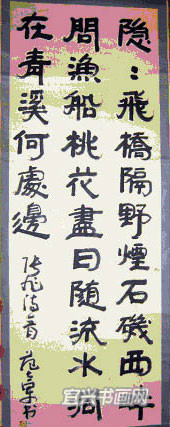 隐:飛橋隔野煙石磯西畔
問漁船桃花盡日随流水洞
在青溪何處邊
张旭诗一首
書
宜兴书画网